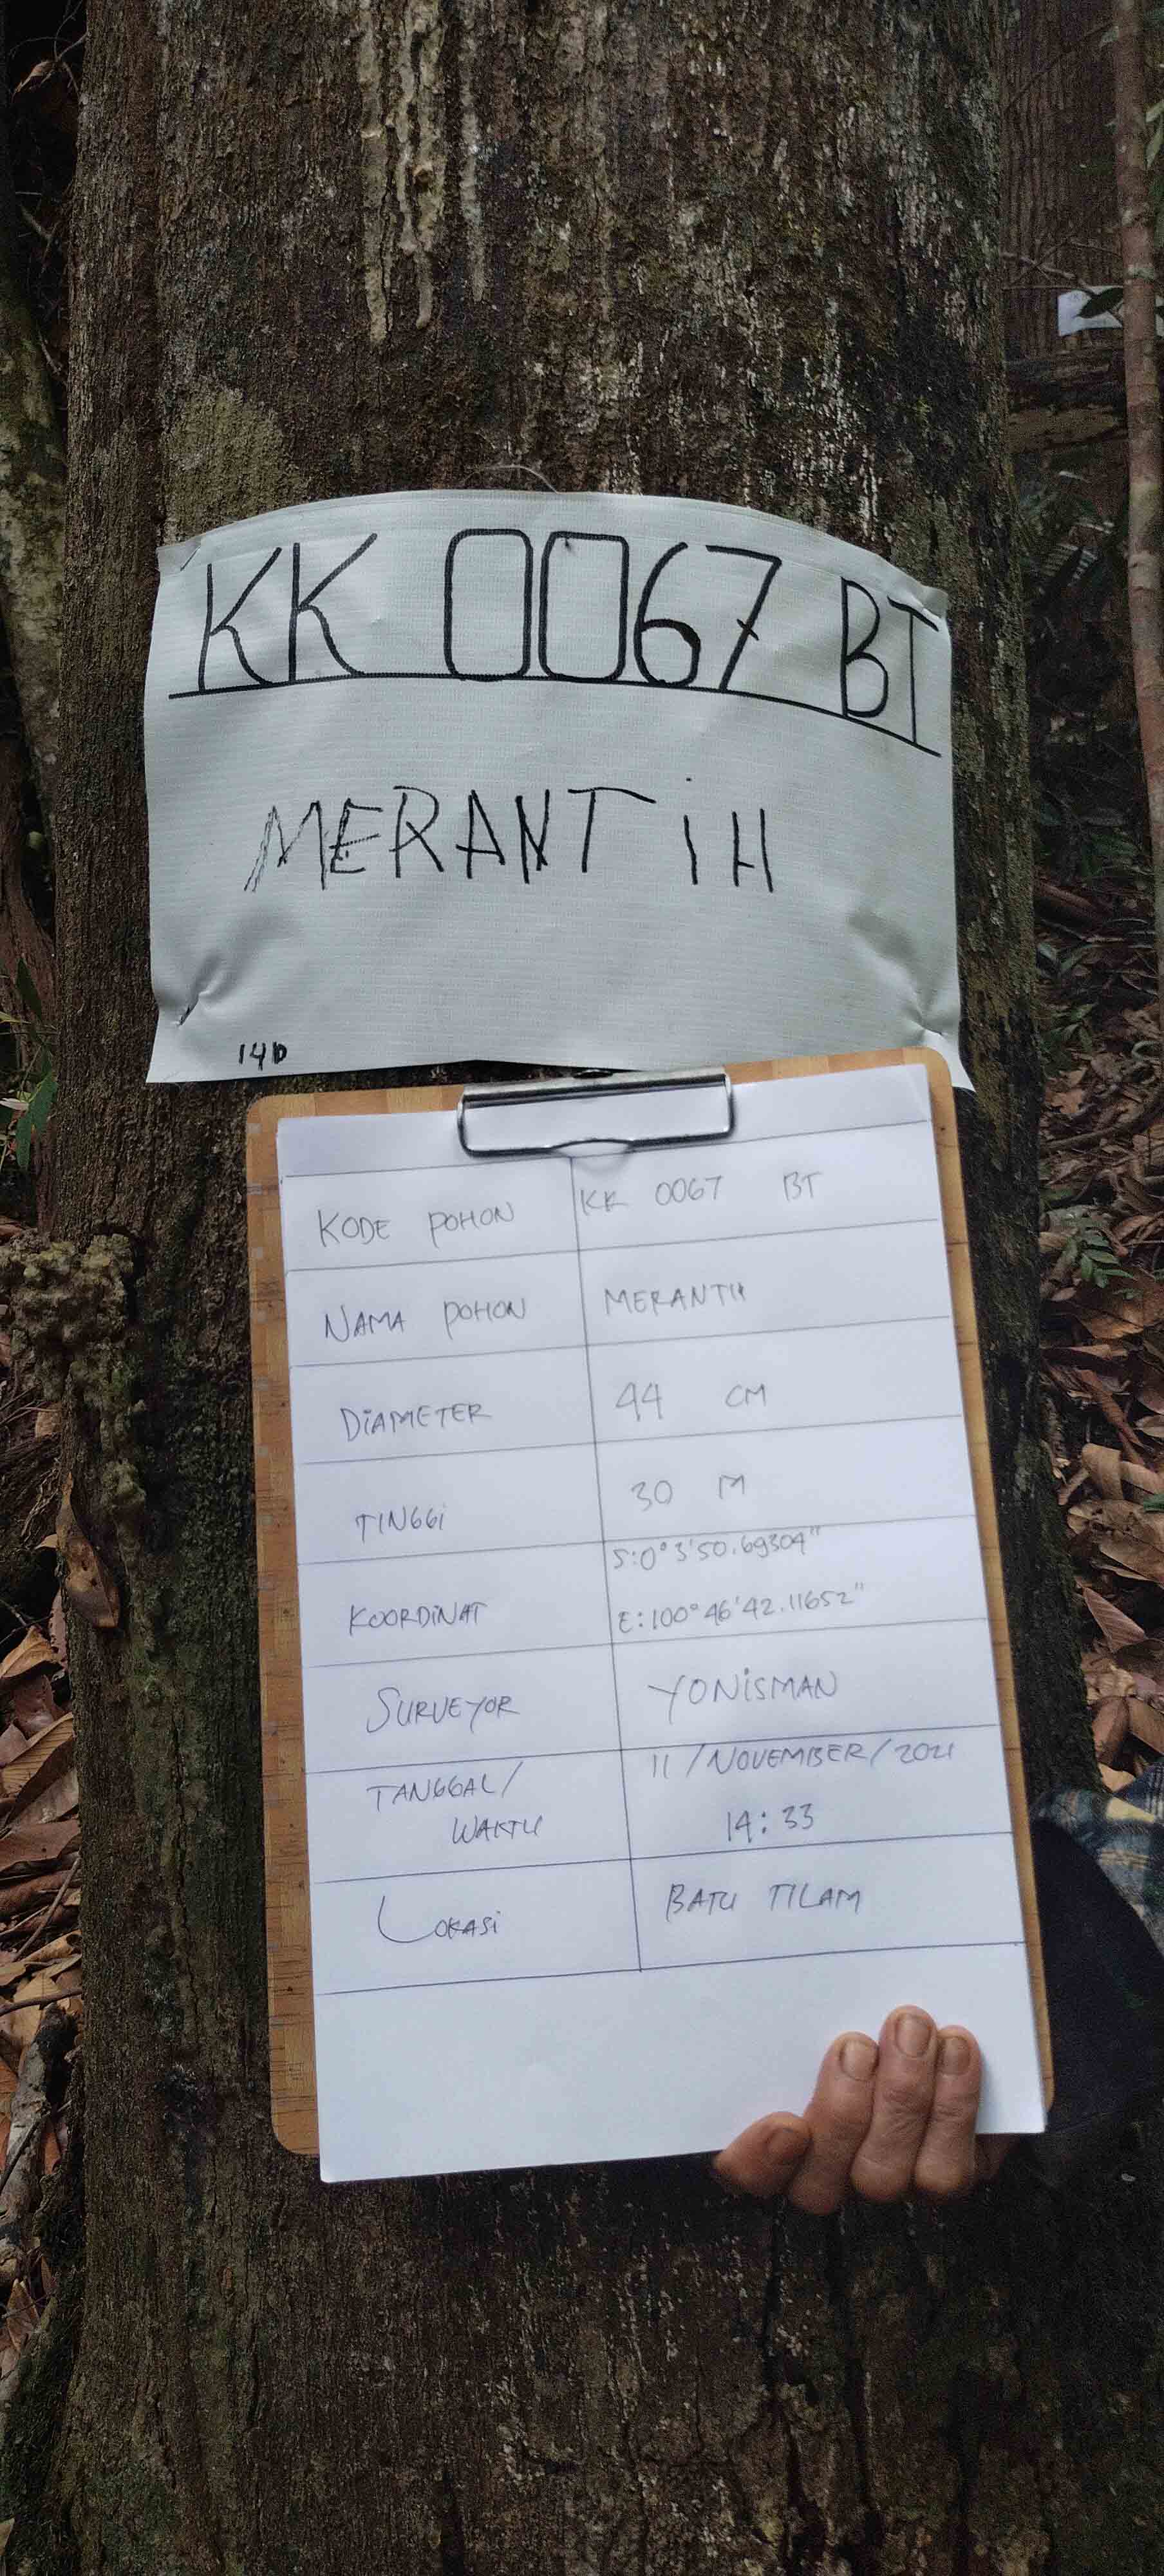 KK 0067 BT
MERANTiH
140
KODE POHON KK 0067 BT
NAMA POHON MERANTIH
DiAMETER 44 CM
TINGGi 30 M
KOORDiNAT S:0°3'50.69304"
E:100°46'42.11652"
SURVEYOR YONiSMAN
TANGGAL/ 11/NOVEMBER/2021
WAKTU 14:33
LOKASi BATU TILAM